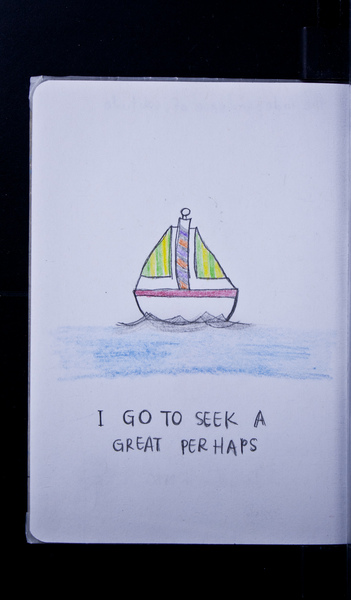 I GO TO SEEK A
GREAT PERHAPS